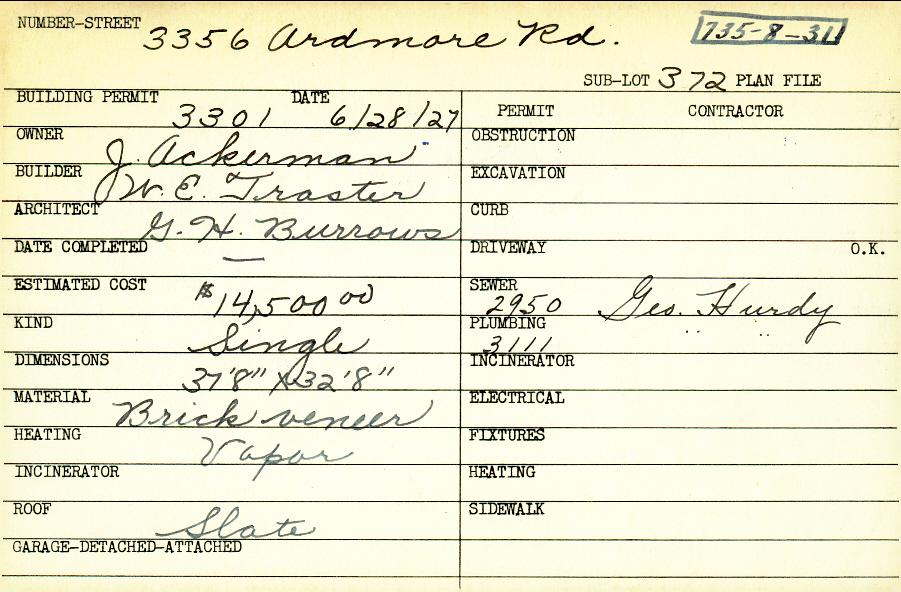 NUMBER-STREET 3356 Ardmore Rd. 735-8-31
SUB-LOT 372 PLAN FILE
BUILDING PERMIT 3301 DATE 6/28/27
OWNER J. Ackerman
BUILDER W. E. Traster
ARCHITECT G. H. Burrows
DATE COMPLETED —
ESTIMATED COST $14,500 00
KIND Single
DIMENSIONS 37'8" X 32'8"
MATERIAL Brick veneer
HEATING Vapor
INCINERATOR
ROOF Slate
GARAGE-DETACHED-ATTACHED
PERMIT CONTRACTOR
OBSTRUCTION
EXCAVATION
CURB
DRIVEWAY O.K.
SEWER 2950 Geo. Hurdy
PLUMBING 3111 " "
INCINERATOR
ELECTRICAL
FIXTURES
HEATING
SIDEWALK